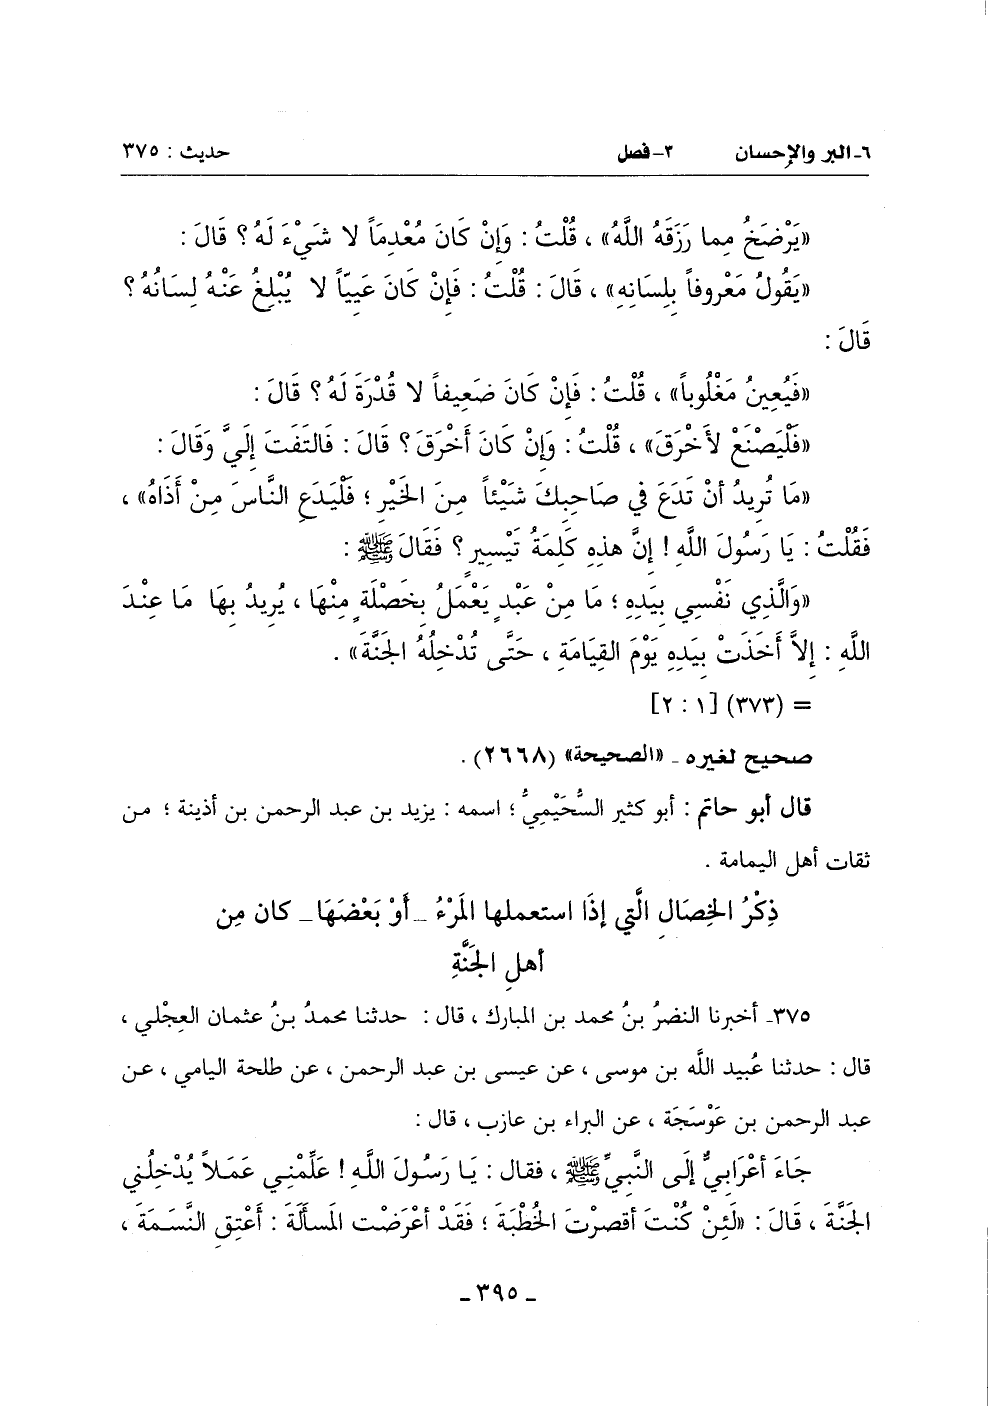 ٦- البر والإحسان ٢- فصل حديث : ٣٧٥
«يَرْضَخُ مِما رَزَقَهُ اللَّهُ» ، قُلْتُ : وَإِنْ كَانَ مُعْدِمَاً لا شَيْءَ لَهُ ؟ قَالَ :
«يَقُولُ مَعْروفاً بِلِسَانِهِ» ، قَالَ : قُلْتُ : فَإِنْ كَانَ عَيِيّاً لا يُبْلِغُ عَنْهُ لِسَانُهُ ؟
قَالَ :
«فَيُعِينُ مَغْلُوباً» ، قُلْتُ : فَإِنْ كَانَ ضَعِيفاً لا قُدْرَةَ لَهُ ؟ قَالَ :
«فَلْيَصْنَعْ لأَخْرَقَ» ، قُلْتُ : وَإِنْ كَانَ أَخْرَقَ ؟ قَالَ : فَالتَفَتَ إِلَيَّ وَقَالَ :
«مَا تُرِيدُ أنْ تَدَعَ فِي صَاحِبِكَ شَيْئاً مِنَ الخَيْرِ ؛ فَلْيَدَعِ النَّاسَ مِنْ أَذَاهُ» ،
فَقُلْتُ : يَا رَسُولَ اللَّهِ ! إِنَّ هذِهِ كَلِمَةُ تَيْسِيرٍ ؟ فَقَالَ ﷺ :
«وَالَّذِي نَفْسِي بِيَدِهِ ؛ مَا مِنْ عَبْدٍ يَعْمَلُ بِخَصْلَةٍ مِنْهَا ، يُرِيدُ بِهَا مَا عِنْدَ
اللَّهِ : إِلاَّ أَخَذَتْ بِيَدِهِ يَوْمَ القِيَامَةِ ، حَتَّى تُدْخِلُهُ الجَنَّةَ» .
= (٣٧٣) [١ : ٢]
صحيح لغيره ـ «الصحيحة» (٢٦٦٨) .
قال أبو حاتم : أبو كثير السُّحَيْمِيُّ ؛ اسمه : يزيد بن عبد الرحمن بن أذينة ؛ من
ثقات أهل اليمامة .
ذِكْرُ الخِصَالِ الَّتِي إِذَا استعملها المَرْءُ ـ أَوْ بَعْضَهَا ـ كان مِن
أهلِ الجَنَّةِ
٣٧٥ـ أخبرنا النضرُ بنُ محمد بن المبارك ، قال : حدثنا محمدُ بنُ عثمان العِجْلي ،
قال : حدثنا عُبيد اللَّه بن موسى ، عن عيسى بن عبد الرحمن ، عن طلحة اليامي ، عن
عبد الرحمن بن عَوْسَجَة ، عن البراء بن عازب ، قال :
جَاءَ أَعْرَابِيٌّ إِلَى النَّبِيِّ ﷺ ، فقال : يَا رَسُولَ اللَّهِ ! عَلِّمْنِي عَمَلاً يُدْخِلُنِي
الجَنَّةَ ، قَالَ : «لَئِنْ كُنْتَ أقصرْتَ الخُطْبَةَ ؛ فَقَدْ أَعْرَضْت المَسأَلَةَ : أَعْتِقِ النَّسَمَةَ ،
ـ ٣٩٥ ـ